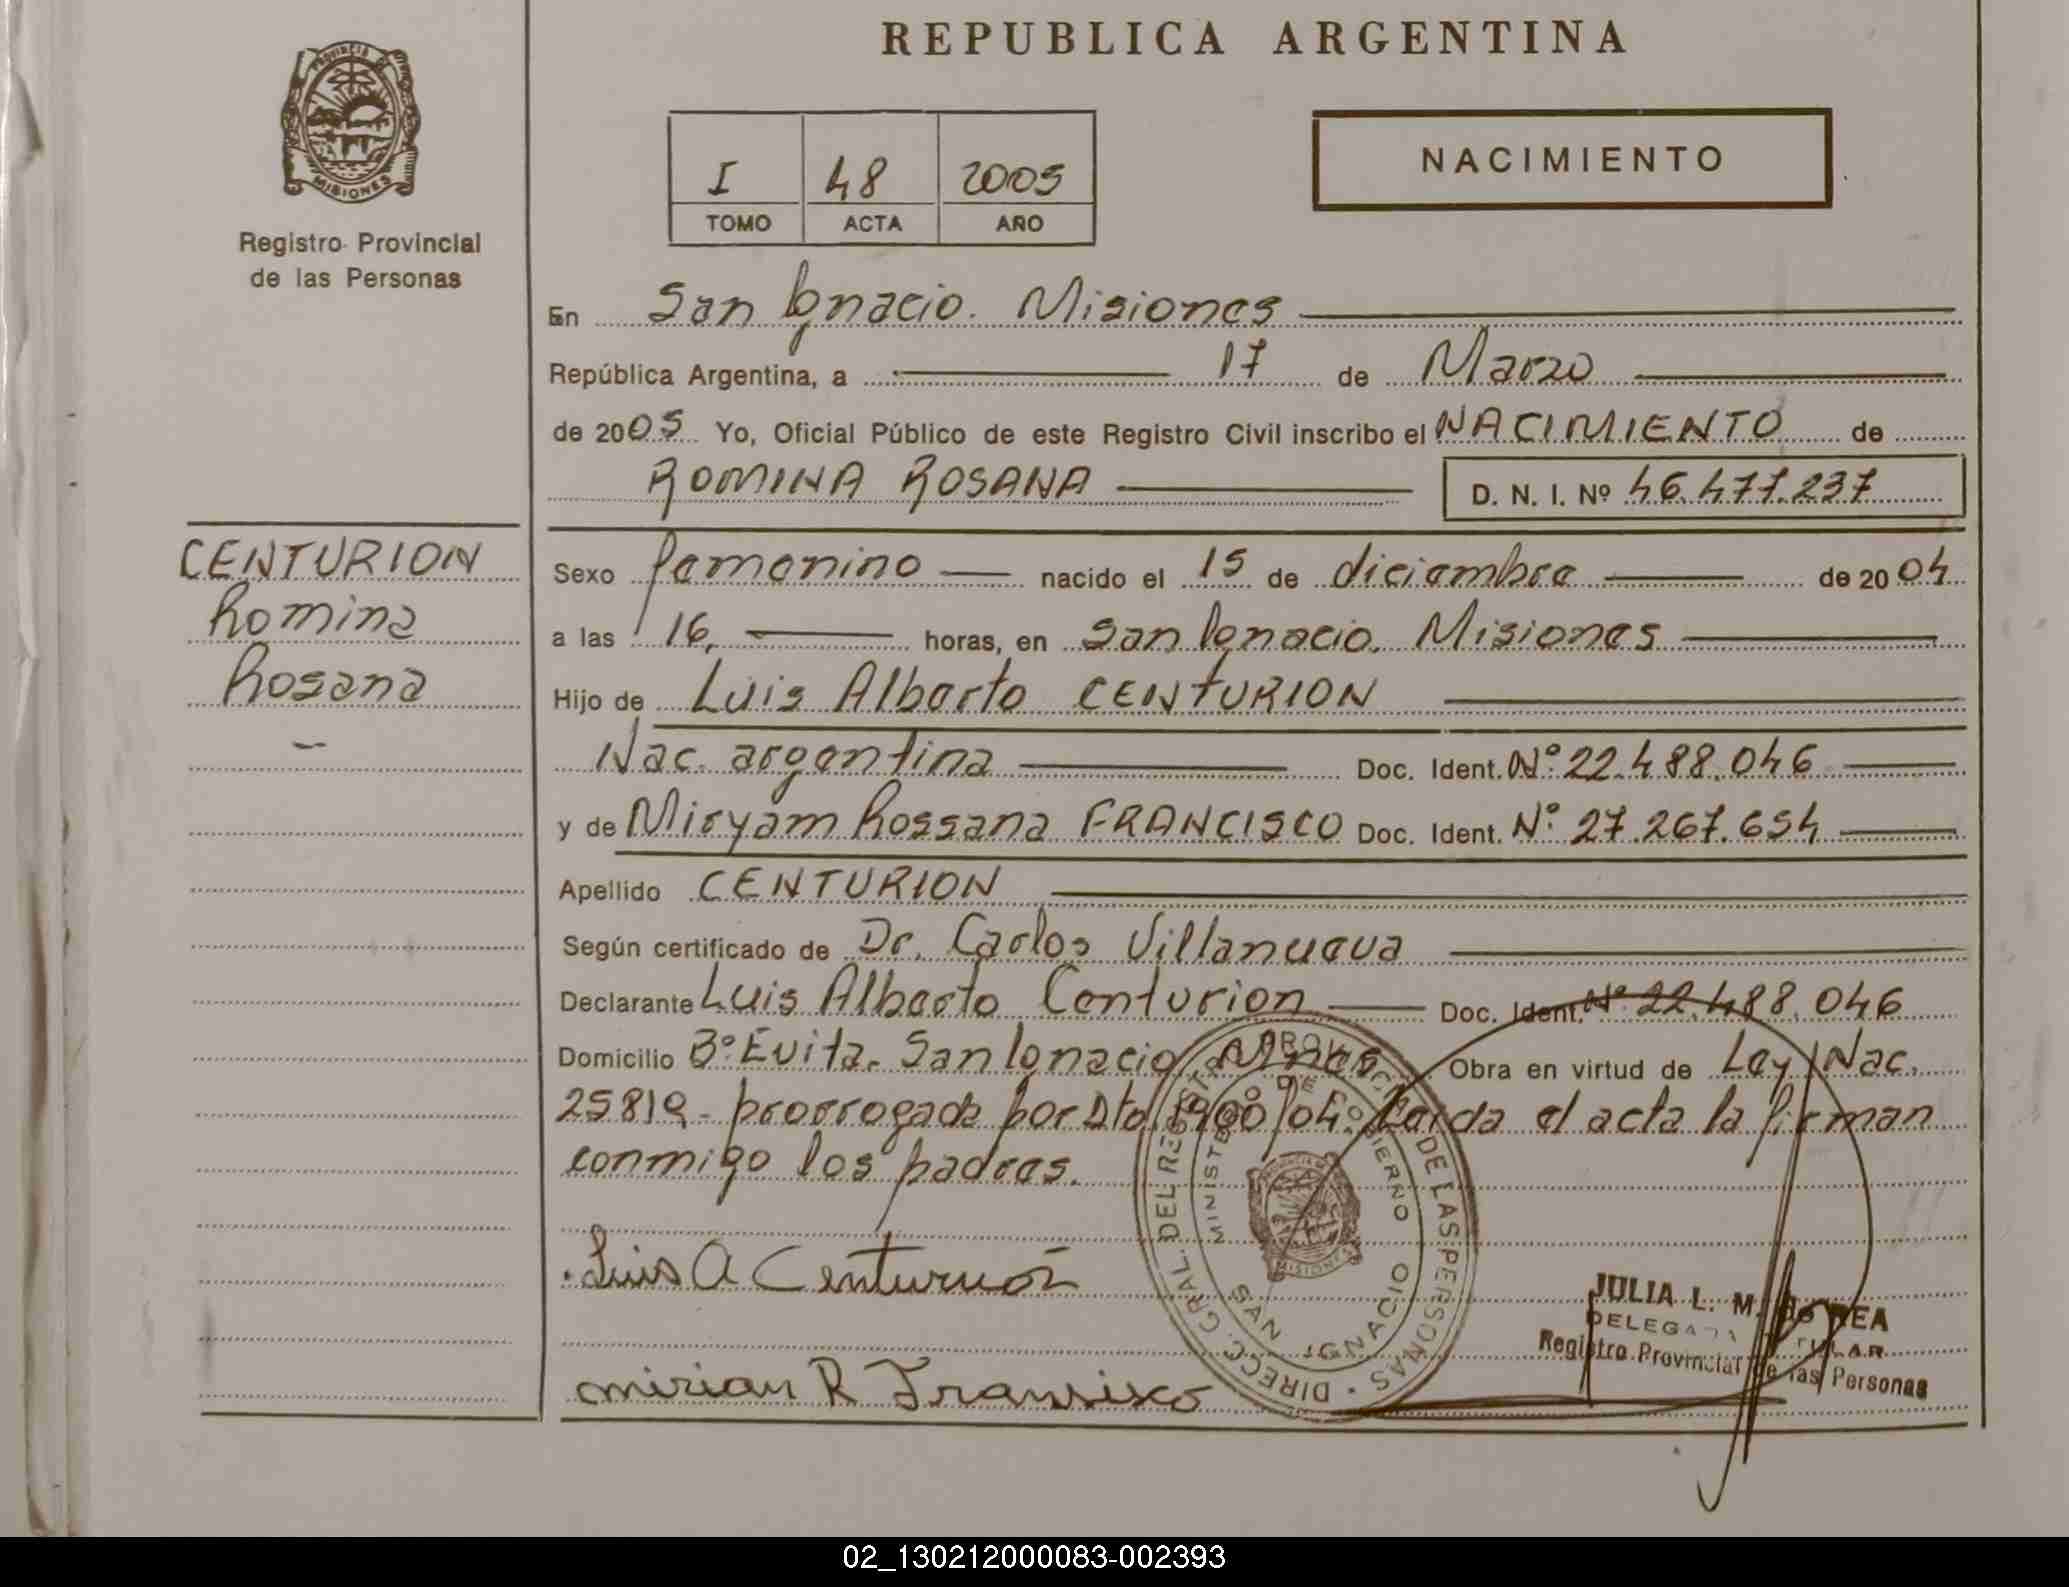 REPUBLICA ARGENTINA
PROVINCIA DE MISIONES
Registro Provincial
de las Personas
I 48 2005
TOMO ACTA AÑO
NACIMIENTO
En San Ignacio. Misiones
República Argentina, a 17 de Marzo
de 2005 Yo, Oficial Público de este Registro Civil inscribo el NACIMIENTO de
ROMINA ROSANA D. N. I. Nº 46.477.237
CENTURION
Romina
Rosana
Sexo femenino nacido el 15 de diciembre de 2004
a las 16, horas, en San Ignacio. Misiones
Hijo de Luis Alberto CENTURION
Nac. argentina Doc. Ident. Nº 22.488.046
y de Miryam Rossana FRANCISCO Doc. Ident. Nº 27.267.654
Apellido CENTURION
Según certificado de Dr. Carlos Villanueva
Declarante Luis Alberto Centurion Doc. Ident. Nº 22.488.046
Domicilio Bº Evita. San Ignacio Mnes Obra en virtud de Ley Nac.
25819 - prorrogada por Dto. 1900/04. Leída el acta la firman
conmigo los padres.
Luis A Centurión
mirian R Fransixo
DIRECC. GRAL. DEL REGISTRO PROVINCIAL DE LAS PERSONAS
MINISTERIO DE GOBIERNO
SAN IGNACIO
MISIONES
JULIA L. M.
DELEGADA TITULAR
Registro Provincial de las Personas
02_130212000083-002393